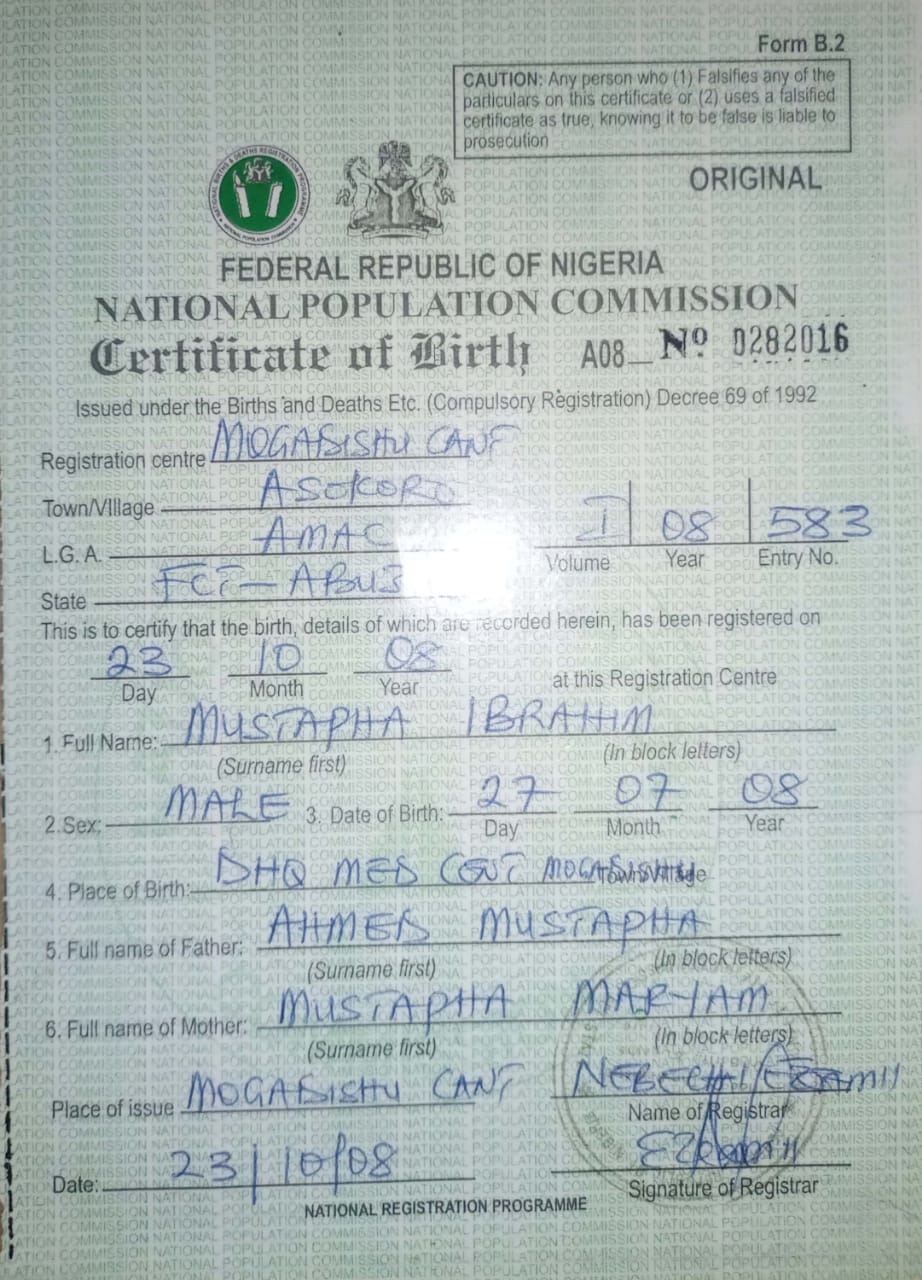 Form B.2
CAUTION: Any person who (1) Falsifies any of the
particulars on this certificate or (2) uses a falsified
certificate as true, knowing it to be false is liable to
prosecution
ORIGINAL
FEDERAL REPUBLIC OF NIGERIA
NATIONAL POPULATION COMMISSION
Certificate of Birth A08 Nº 0282016
Issued under the Births and Deaths Etc. (Compulsory Registration) Decree 69 of 1992
Registration centre MOGADISHU CANT
Town/Village ASOKORO
L.G.A. AMAC
I 08 583
Volume Year Entry No.
State FCT - ABUJ
This is to certify that the birth, details of which are recorded herein, has been registered on
23 10 08
Day Month Year at this Registration Centre
1. Full Name: MUSTAPHA IBRAHIM
(Surname first) (In block letters)
2.Sex: MALE 3. Date of Birth: 27 07 08
Day Month Year
4. Place of Birth: DHQ MED CENT MOGADISHU Town/Village
5. Full name of Father: AHMED MUSTAPHA
(Surname first) (In block letters)
6. Full name of Mother: MUSTAPHA MARYAM
(Surname first) (In block letters)
Place of issue MOGADISHU CANT
Name of Registrar
Date: 23/10/08
Signature of Registrar
NATIONAL REGISTRATION PROGRAMME